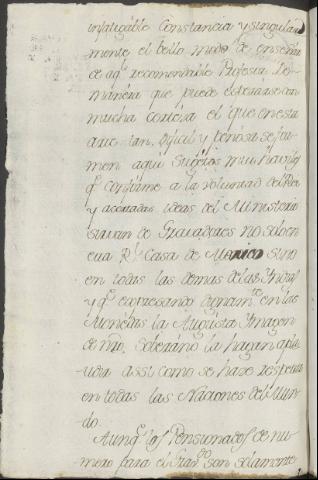 infatigable Constancia y singular
mente el bello modo de enseñar
de aql. recomendable Profesor. De
manera que puede esperarse con
mucha certeza el que en esta
arte tan dificil y penosa se for
men aquí Sugetos mui haviles
qe. conforme a la voluntad del Rey
y acertadas ideas del Ministerio
sirvan de Gravadores no solo en
esta Rl. Casa de Mexico sino
en todas las demas de las Yndias
y qe. expresando dignamte. en las
Monedas la Augusta Ymagen
de nro. soberano la hagan
assi como se hace respetar
en todas las Naciones del Mun
do.
Aunqe. los Pensionados de nu
mero para el Gravo. son solamente